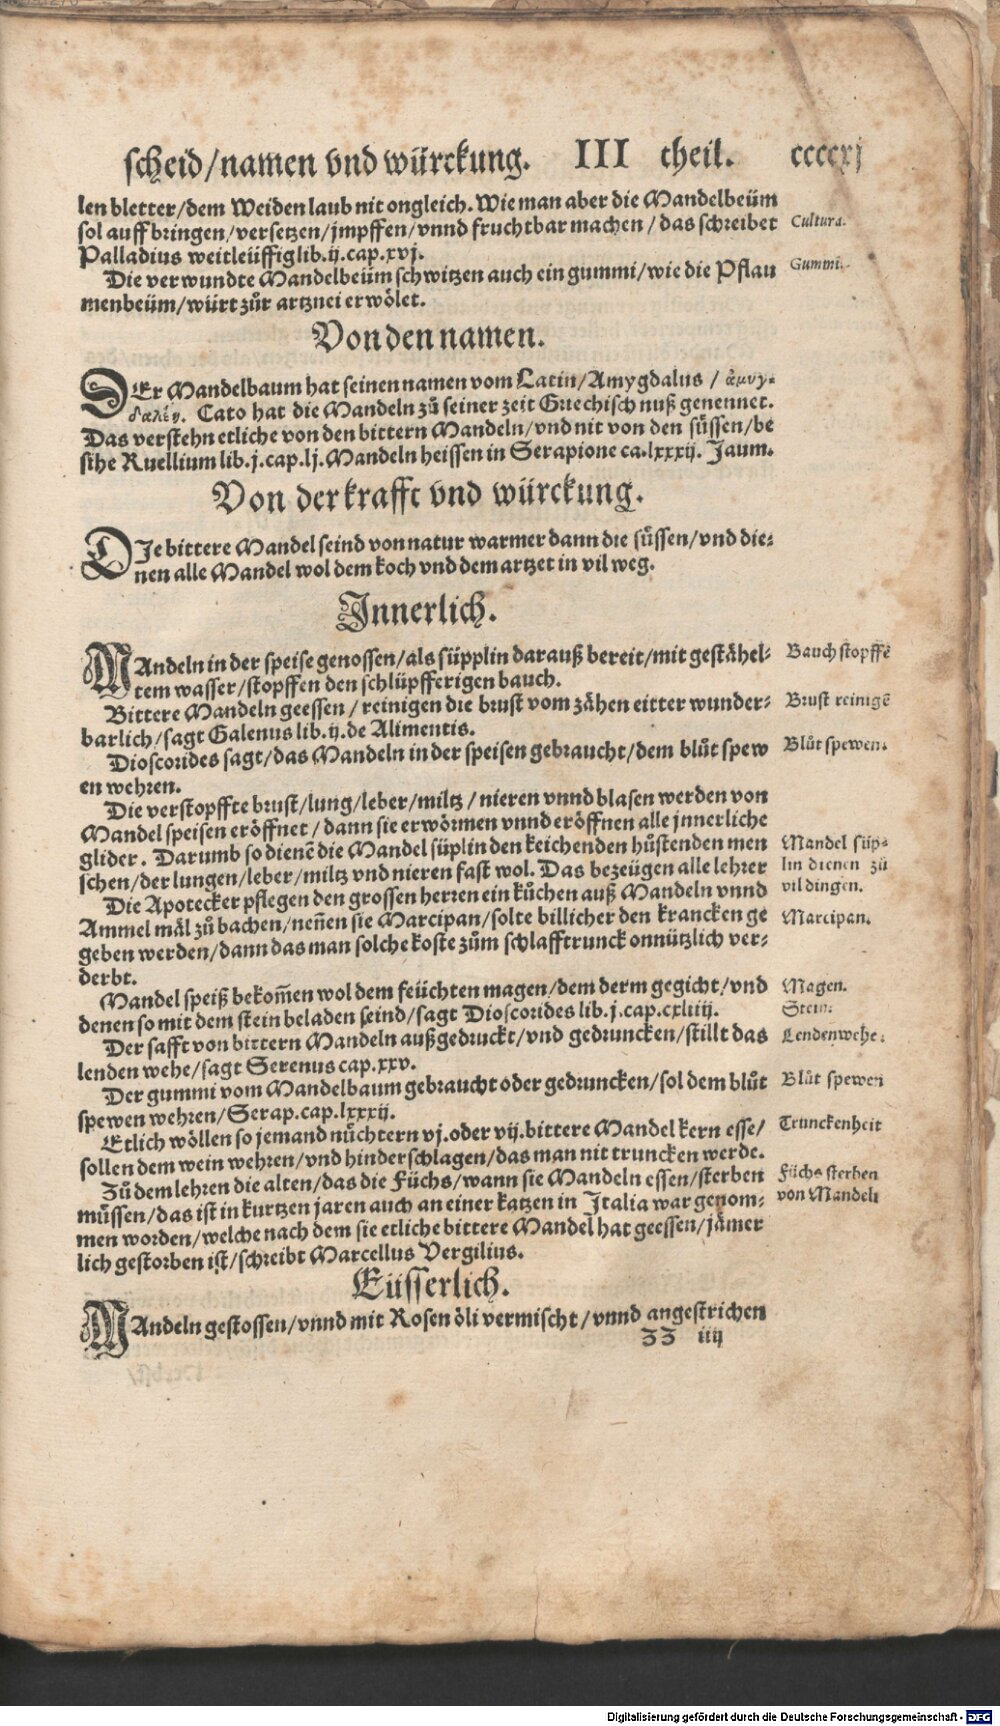 scheid/namen vnd würckung. III theil. ccccxj
len bletter/dem Weiden laub nit ongleich. Wie man aber die Mandelbeüm
sol auffbringen/versetzen/jmpffen/vnnd fruchtbar machen/das schreibet
Cultura.
Palladius weitleüffig lib.ij.cap.xvj.
Die verwundte Mandelbeüm schwitzen auch ein gummi/wie die Pflau
Gummi.
menbeüm/würt zůr artznei erwölet.
Von den namen.
DEr Mandelbaum hat seinen namen vom Latin/Amygdalus/ ἀμυγ-
δαλέη. Cato hat die Mandeln zů seiner zeit Griechisch nuß genennet.
Das verstehn etliche von den bittern Mandeln/vnd nit von den sůssen/be
sihe Ruellium lib.j.cap.lj. Mandeln heissen in Serapione ca.lxxxij. Jaum.
Von der krafft vnd würckung.
DIe bittere Mandel seind von natur warmer dann die sůssen/vnd die-
nen alle Mandel wol dem koch vnd dem artzet in vil weg.
Innerlich.
MAndeln in der speise genossen/als süpplin darauß bereit/mit gestähel-
Bauch stopffē
tem wasser/stopffen den schlüpfferigen bauch.
Bittere Mandeln geessen/reinigen die brust vom zähen eitter wunder-
Brust reinigē
barlich/sagt Galenus lib.ij.de Alimentis.
Dioscorides sagt/das Mandeln in der speisen gebraucht/dem blůt spew
Blůt spewen.
en wehren.
Die verstopffte brust/lung/leber/miltz/nieren vnnd blasen werden von
Mandel speisen eröffnet/dann sie erwörmen vnnd eröffnen alle jnnerliche
glider. Darumb so dienē die Mandel süplin den keichenden hůstenden men
Mandel süp-
schen/der lungen/leber/miltz vnd nieren fast wol. Das bezeügen alle lehrer
lin dienen zů
Die Apotecker pflegen den grossen herren ein kůchen auß Mandeln vnnd
vil dingen.
Ammel mäl zů bachen/neñen sie Marcipan/solte billicher den krancken ge
Marcipan.
geben werden/dann das man solche koste zům schlafftrunck onnützlich ver-
derbt.
Mandel speiß bekom̃en wol dem feüchten magen/dem derm gegicht/vnd
Magen.
denen so mit dem stein beladen seind/sagt Dioscorides lib.j.cap.cxliiij.
Stein.
Der safft von bittern Mandeln außgedruckt/vnd gedruncken/stillt das
Lendenwehe.
lenden wehe/sagt Serenus cap.xxv.
Der gummi vom Mandelbaum gebraucht oder gedruncken/sol dem blůt
Blůt spewen
spewen wehren/Serap.cap.lxxxij.
Etlich wöllen so jemand nůchtern vj.oder vij.bittere Mandel kern esse/
Trunckenheit
sollen dem wein wehren/vnd hinderschlagen/das man nit truncken werde.
Zů dem lehren die alten/das die Füchs/wann sie Mandeln essen/sterben
Füchs sterben
můssen/das ist in kurtzen jaren auch an einer katzen in Italia war genom-
von Mandeln
men worden/welche nach dem sie etliche bittere Mandel hat geessen/jämer
lich gestorben ist/schreibt Marcellus Vergilius.
Eüsserlich.
MAndeln gestossen/vnnd mit Rosen öli vermischt/vnnd angestrichen
ZZ iiij
Digitalisierung gefördert durch die Deutsche Forschungsgemeinschaft - DFG